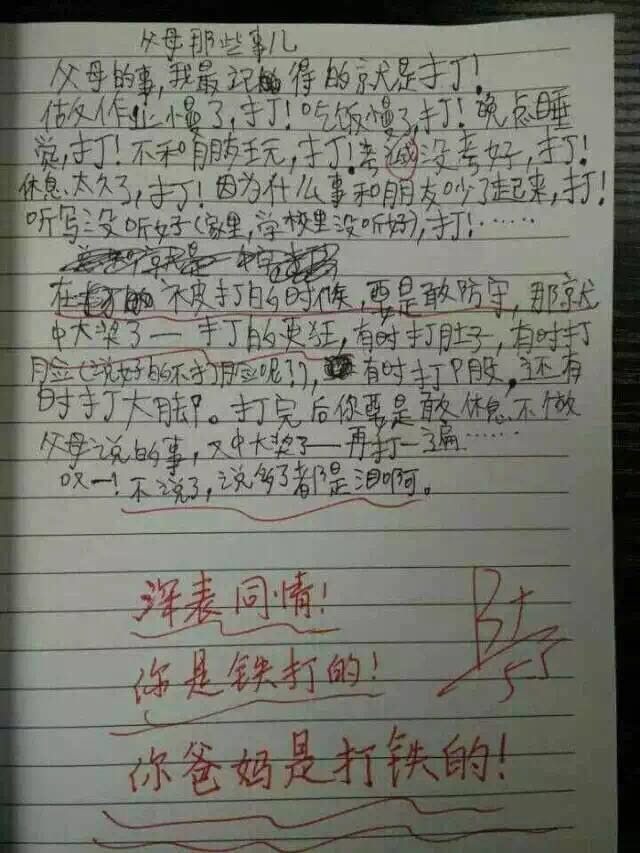 父母那些事儿
父母的事，我最记得的就是打！
做作业慢了，打！吃饭慢了，打！晚点睡
觉，打！不和朋友玩，打！考试没考好，打！
休息太久了，打！因为什么事和朋友吵了起来，打！
听写没听好（家里，学校里没听好），打！……
在被打的时候，要是敢防守，那就
中大奖了——打的更狂，有时打肚子，有时打
脸（说好的不打脸呢？），有时打屁股，还有
时打大腿。打完后你要是敢休息不做
父母说的事，又中大奖了——再打一遍……
哎——！不说了，说多了都是泪啊。
深表同情！
B+
你是铁打的！
5
你爸妈是打铁的！